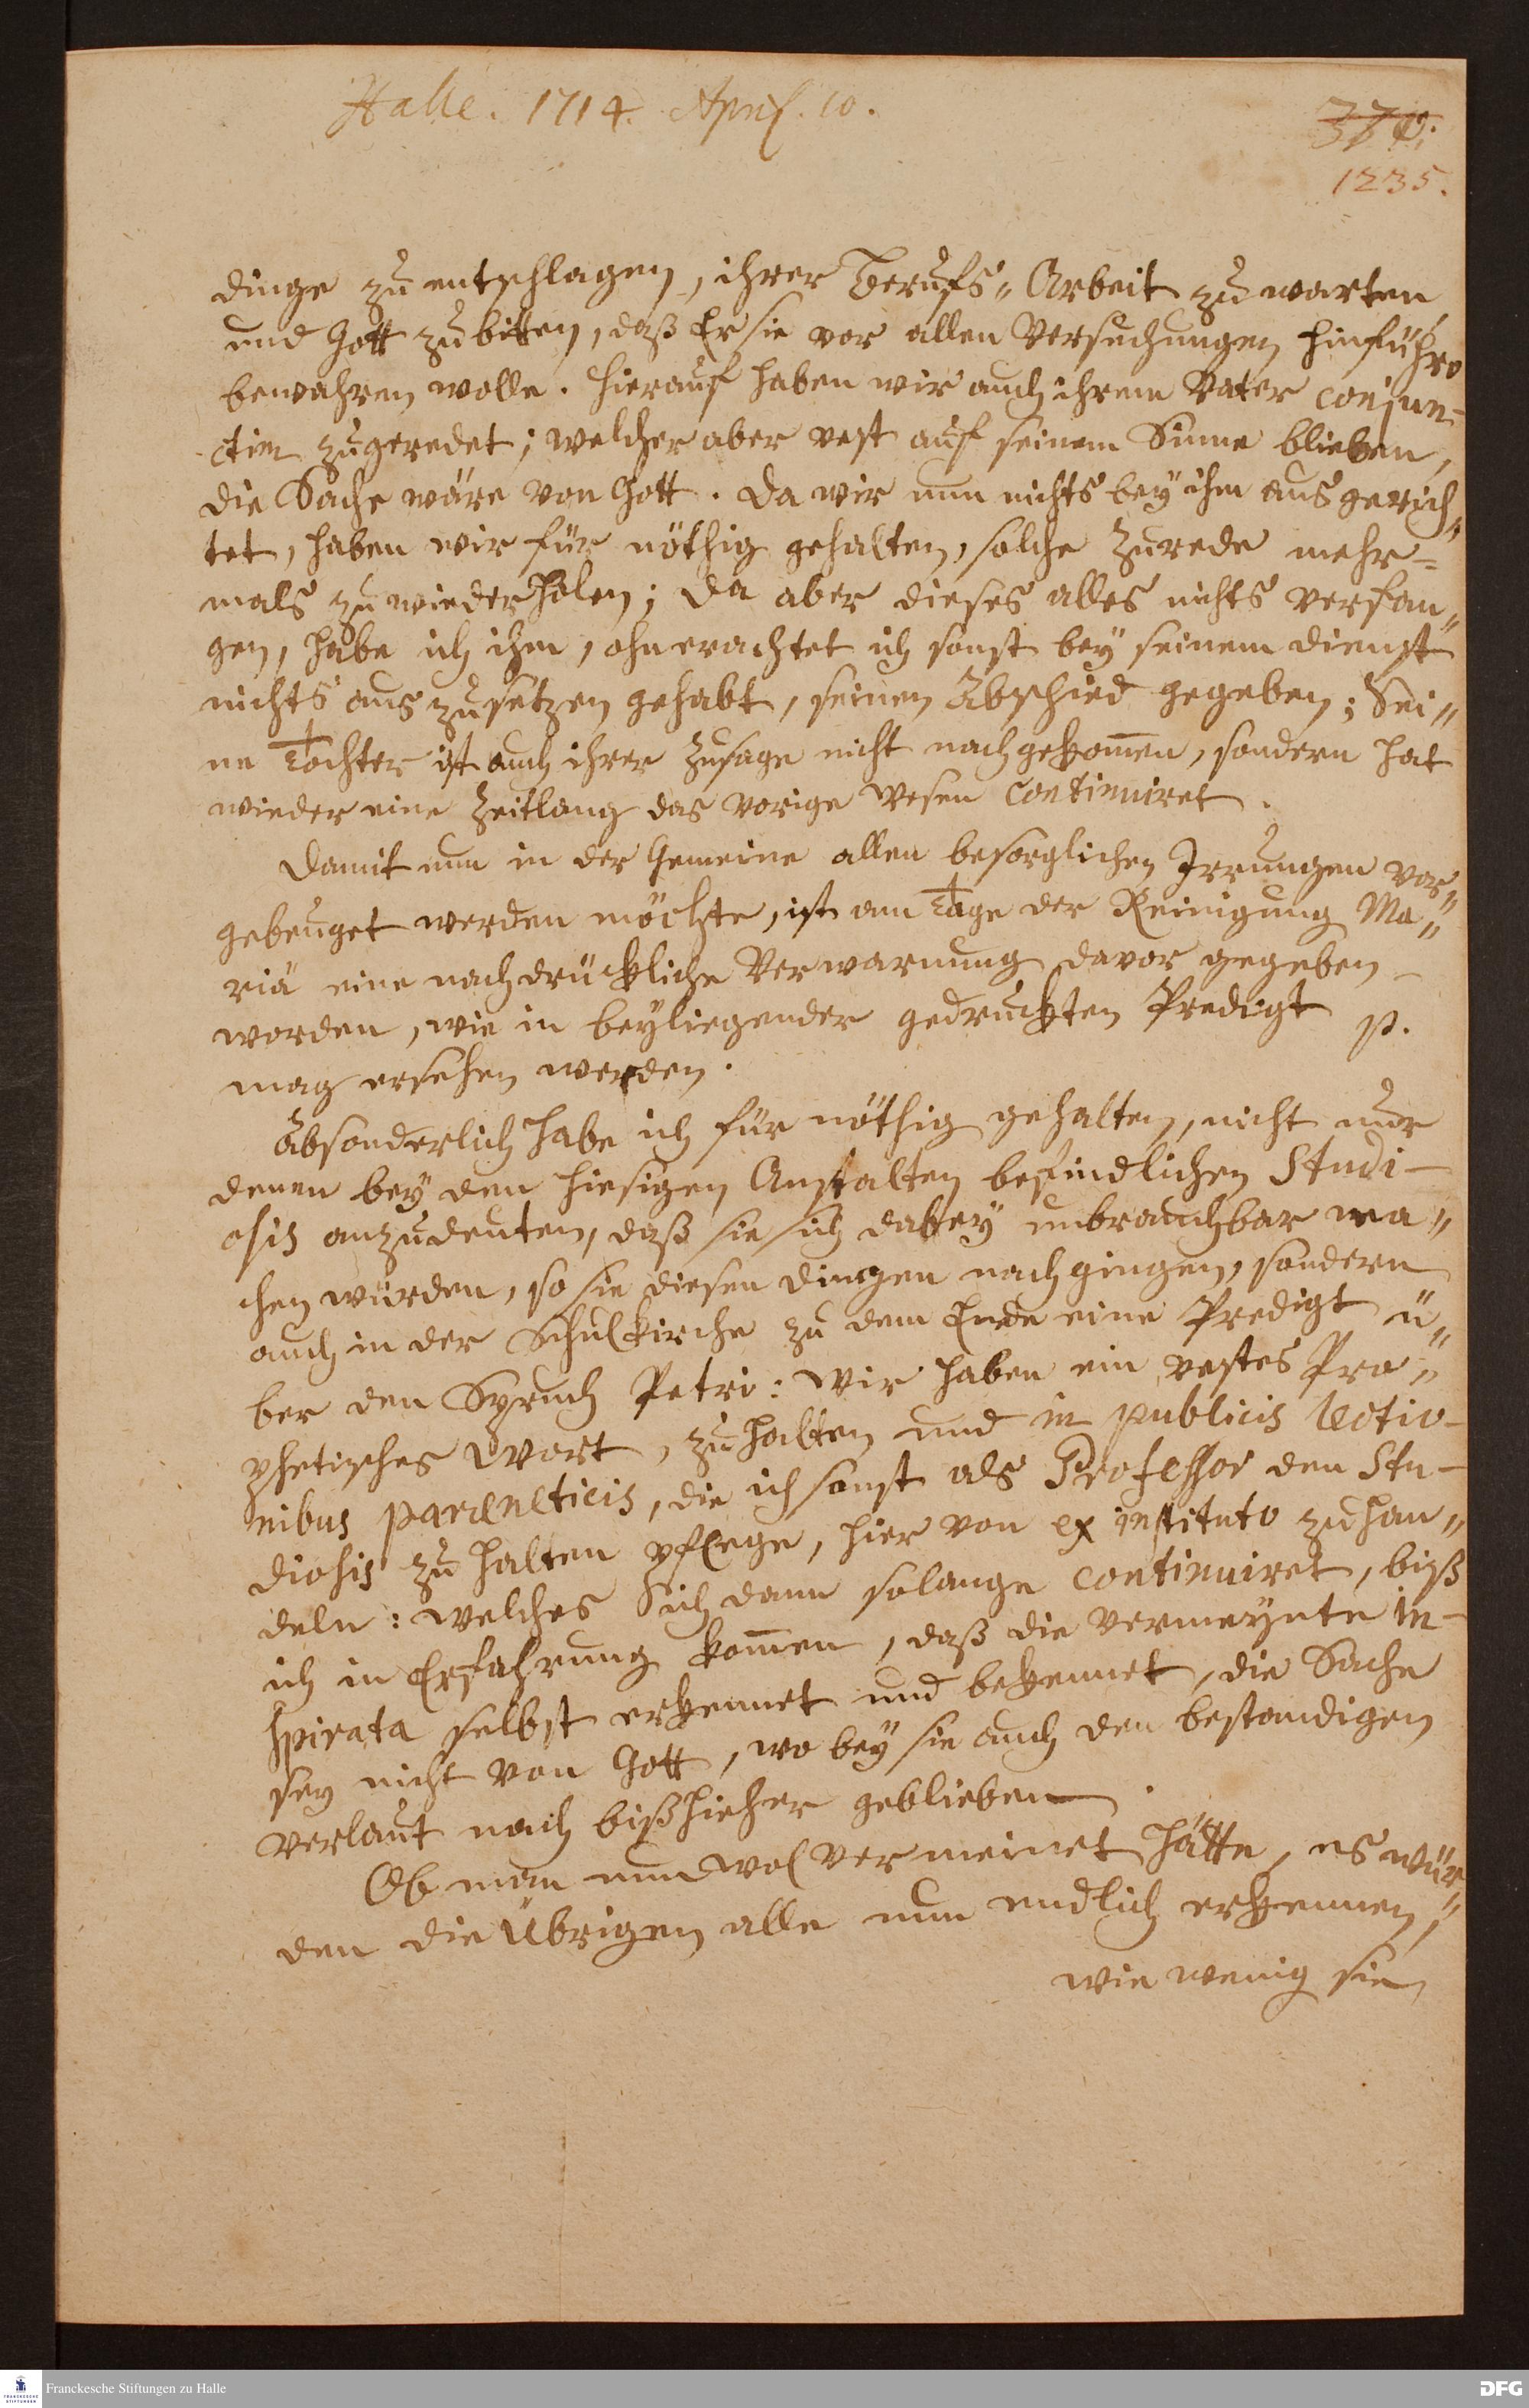 Halle. 1714. Apríl. 10.
370.
1235.
dinge zu entschlagen, ihrer Berufs„Arbeit zu warten
und Gott zu bitten, daß Er sie vor allen Versuchungen hinführo
bewahren wolle. Hierauf haben wir auch ihrem Vater conjun-
ctim zugeredet; welcher aber vest auf seinem Sinne blieben,
die Sache wäre von Gott. Da wir nun nichts bey ihm ausgerich„
tet, haben wir für nöthig gehalten, solche Zurede mehr=
mals zu wiederholen; da aber dieses alles nichts verfan„
gen, habe ich ihm, ohnerachtet ich sonst bey seinem Dienst
nichts auszusetzen gehabt, seinen Abschied gegeben; Sei„
ne Tochter ist auch ihrer Zusage nicht nachgekom̄en, sondern hat
wieder eine Zeitlang das vorige Wesen continuiret.
Damit nun in der Gemeine allen besorglichen Irrungen vor„
gebeuget werden möchte, ist am Tage der Reinigung Ma„
riä eine nachdrückliche Verwarnung davor gegeben
worden, wie in beyliegender gedruckten Predigt p.
mag ersehen werden.
Absonderlich habe ich für nöthig gehalten, nicht nur
denen bey den hiesigen Anstalten befindlichen Studi-
osis anzudeuten, daß sie sich dabey unbrauchbar ma„
chen würden, so sie diesen dingen nachgingen, sondern
auch in der Schulkirche zu dem Ende eine Predigt ü„
ber den Spruch Petri: Wir haben ein vestes Pro„
phetisches Wort, zu halten und in publicis lectio-
nibus paræneticis, die ich sonst als Professor den Stu-
diosis zu halten pflege, hier von ex instituto zu han„
deln: welches ich dann solange continuiret, biß
ich in Erfahrung kom̄en, daß die vermeynte in-
spirata selbst erkennet und bekennet, die Sache
sey nicht von Gott, wo bey sie auch den bestandigen
Verlaut nach bißhieher geblieben.
Ob man nun wol vermeinet hätte, es wür„
den die Übrigen alle nun endlich erkennen,
wie wenig sie
Franckesche Stiftungen zu Halle
DFG